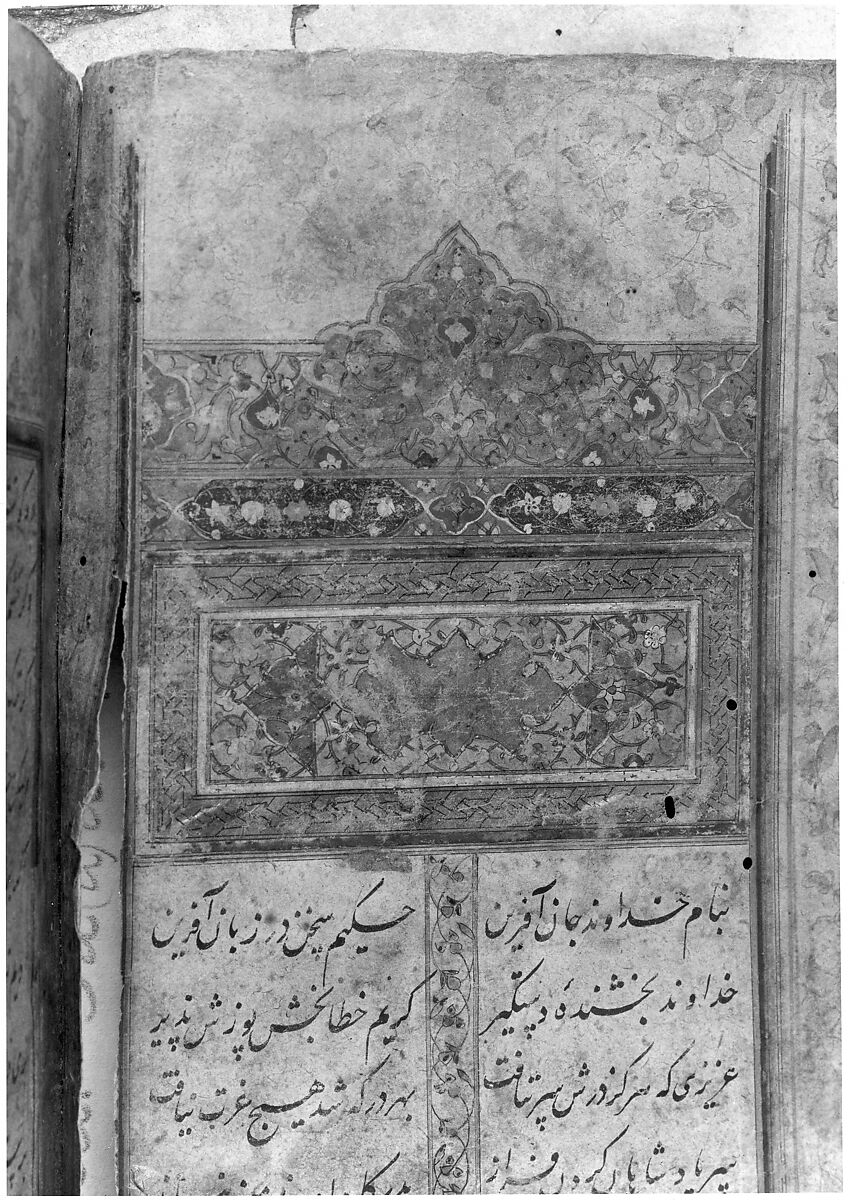 بنام خداوند جان آفرین حکیم سخن در زبان آفرین
خداوند بخشندهٔ دستگیر کریم خطابخش پوزش پذیر
عزیزی که هر کز درش سر بتافت بهر در که شد هیچ عزت نیافت
سر پادشاهان گردن فراز